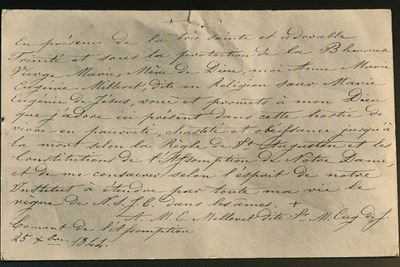 En présence de la très sainte et adorable
Trinité et sous la protection de la B heureuse
Vierge Marie, Mère de Dieu, moi Anne Marie
Eugénie Milleret, dite en Religion sœur Marie
Eugénie de Jésus, voue et promets à mon Dieu
que j'adore ici présent dans cette hostie de
vivre en pauvreté, chasteté et obéissance jusqu'à
la mort selon la Règle de St Augustin et les
Constitutions de l'Assomption de Notre Dame,
et de me consacrer selon l'esprit de notre
Institut à étendre par toute ma vie le
règne de N. S. J. C. dans les âmes. +
A. M. E. Milleret dite Sr M. Eug. de J.
Couvent de l'Assomption
25 Xbre 1844.